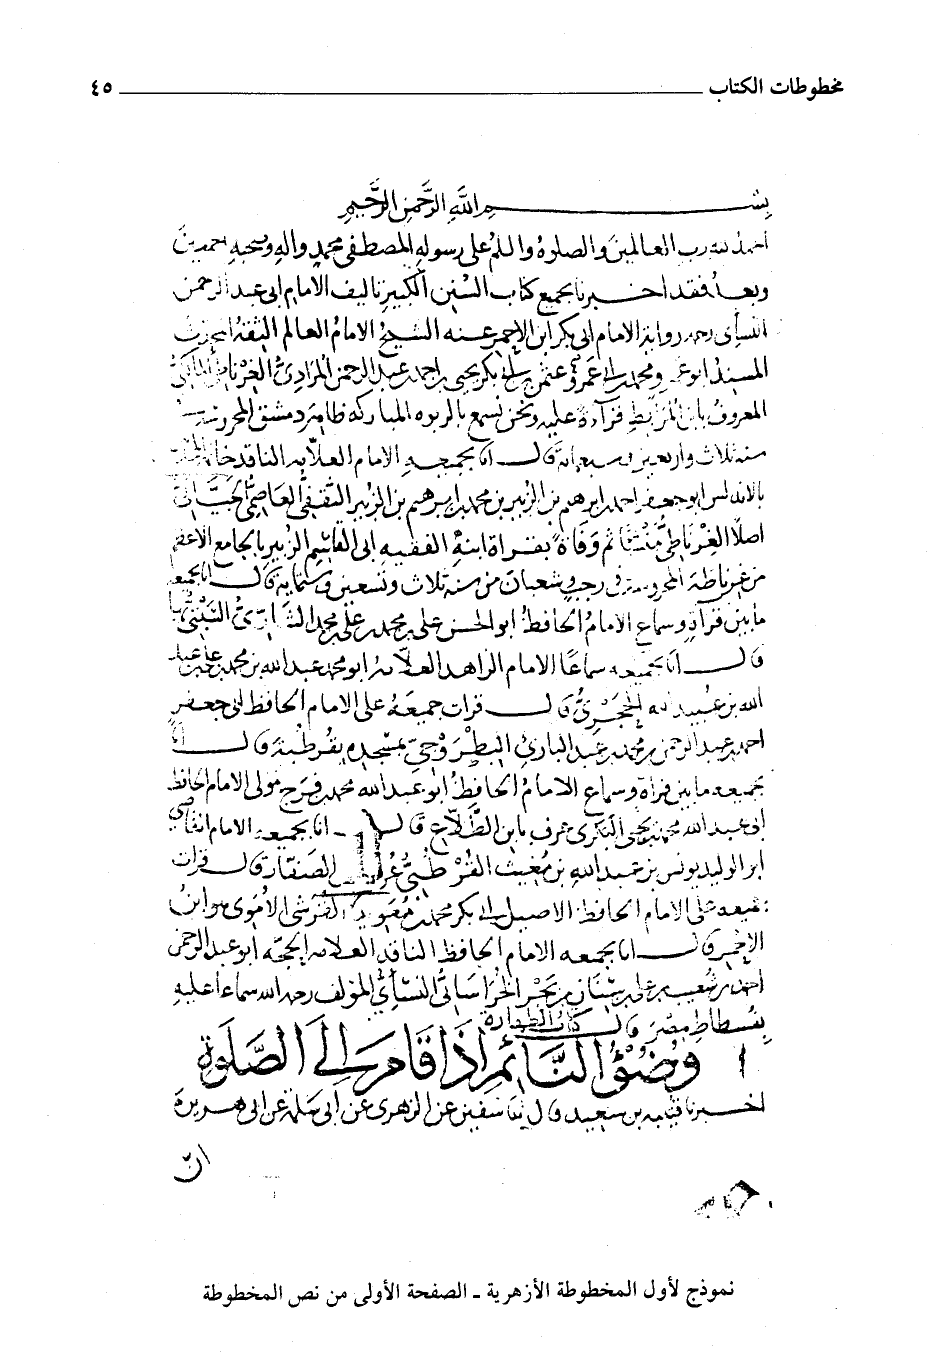 مخطوطات الكتاب ٤٥
بسم الله الرحمن الرحيم
الحمد لله رب العالمين والصلوة والسلم على رسوله المصطفى محمد واله وصحبه اجمعين
وبعد فقد اخبرنا بجميع كتاب السنن الكبير تاليف الامام ابى عبد الرحمن
النسأى رحمه رواية الامام ابى بكر ابن الاحمر عنه الشيخ الامام العالم الثقة المحدث
المسند ابو عمرو محمد بن ابى عمرو عثمن بن ابى بكر يحيى بن احمد بن عبد الرحمن المرادى الغرناطى المالكى
المعروف بابن المرابط قرآءة عليه ونحن نسمع بالربوه المباركه ظاهر دمشق المحروسة
سنه ثلاث واربعين وسبعمائة قال انا بجميعه الامام العلامه الناقد خاتمة
بالاندلس ابو جعفر احمد بن ابرهيم بن الزبير بن محمد بن ابرهيم بن الزبير الثقفى العاصمى الجيانى
اصلا الغرناطى منشأ ثم وفاة بقراة ابنه الفقيه ابى القاسم الزبير بالجامع الاعظم
من غرناطة المحروسة فى رجب وشعبان من سنه ثلاث وتسعين وستمايه قال انا بجميعه
ما بين قرآة وسماع الامام الحافظ ابو الحسن على بن محمد بن على بن محمد الشارى
قال انا بجميعه سماعا الامام الزاهد العلامه ابو محمد عبد الله بن محمد بن على بن عبد
الله بن عبيد الله الحجرى قال قرات جميعه على الامام الحافظ ابى جعفر
احمد بن عبد الرحمن بن محمد بن عبد البارئ البطروجى بمسجده بقرطبة قال انا
بجميعه ما بين قراة وسماع الامام الحافظ ابو عبد الله محمد بن فرج مولى الامام الحافظ
ابى عبد الله محمد بن يحيى البكرى عرف بابن الطلاع قال انا بجميعه الامام القاضى
ابو الوليد يونس بن عبد الله بن مغيث القرطبى عرف بابن الصفار قال قرات
جميعه على الامام الحافظ الاصيل ابى بكر محمد بن معوية القرشى الاموى هو ابن
الاحمر قال انا بجميعه الامام الحافظ الناقد العلامه الحجه ابو عبد الرحمن
احمد بن شعيب بن على بن سنان بن بحر الخراسانى النسأى المؤلف رحمه الله سماعا عليه
بفسطاط مصر قال كتاب الطهارة
وضوء النائم اذا قام الى الصلوة
اخبرنا قتيبه بن سعيد قال ثنا سفين عن الزهرى عن ابى سلمة عن ابى هريرة
ان
نموذج لأول المخطوطة الأزهرية ـ الصفحة الأولى من نص المخطوطة